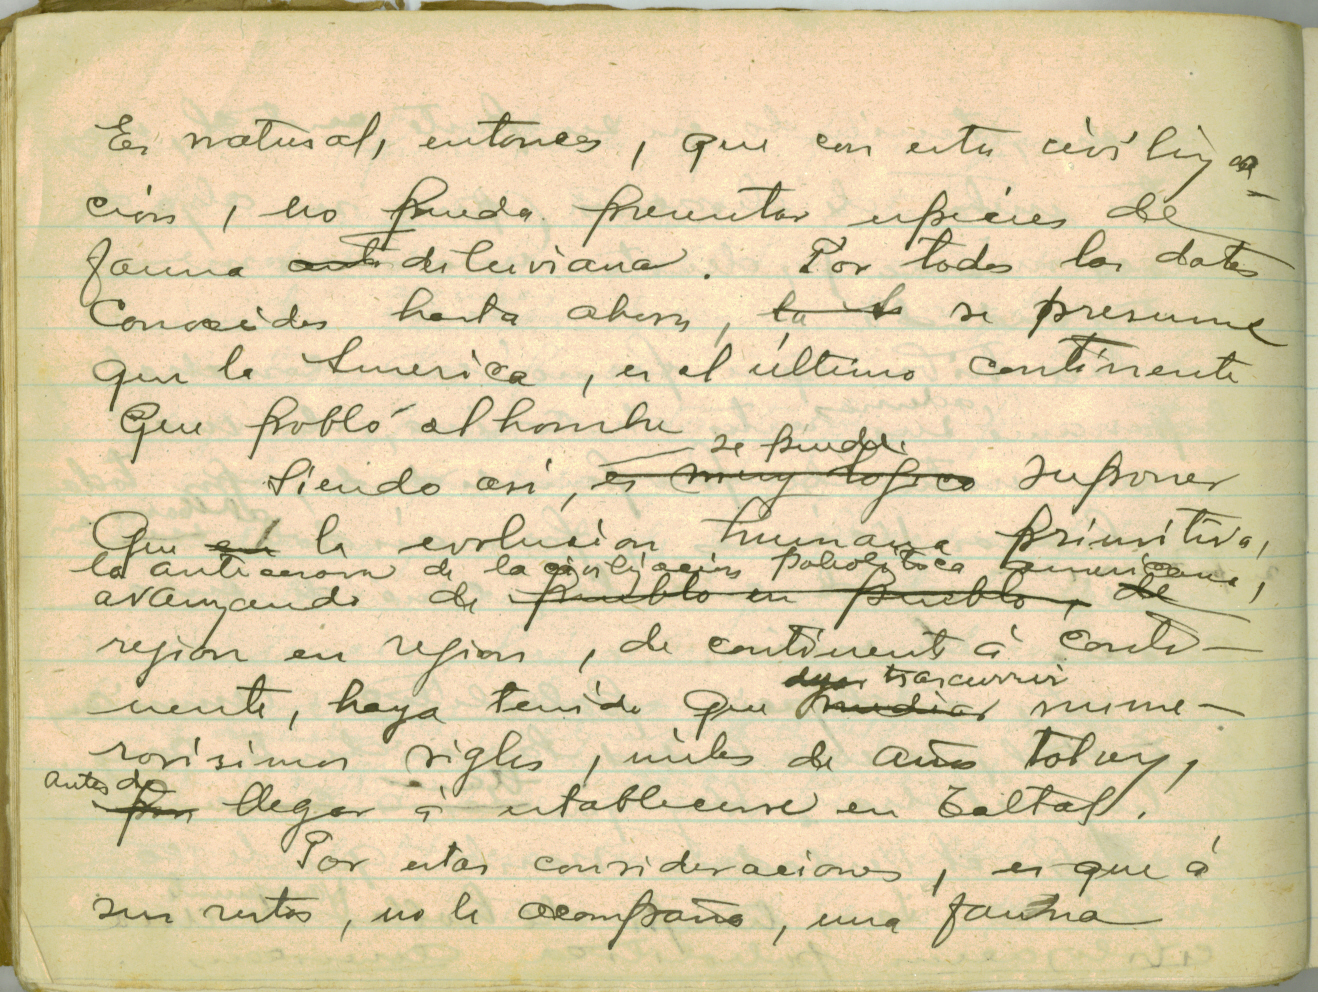 Es natural, entonces, que con esta civiliza
ción, no pueda presentar especies de
fauna ante diluviana. Por todos los datos
Conocidos hasta ahora, la se presume
que la America, es el último continente
Que pobló el hombre
se puede
Siendo así, es muy logico suponer
Que en la evolucion humana primitiva,
la antecesora de la civilizacion paleolitica americana,
avanzando de pueblo en pueblo, de
region en region, de continente á conti-
trascurrir
nente, haya tenido que mediar nume-
rosisimos siglos, miles de años talvez,
antes de
por llegar á establecerse en Taltal.
Por estas consideraciones, es que á
sus restos, no le acompaña, una fauna